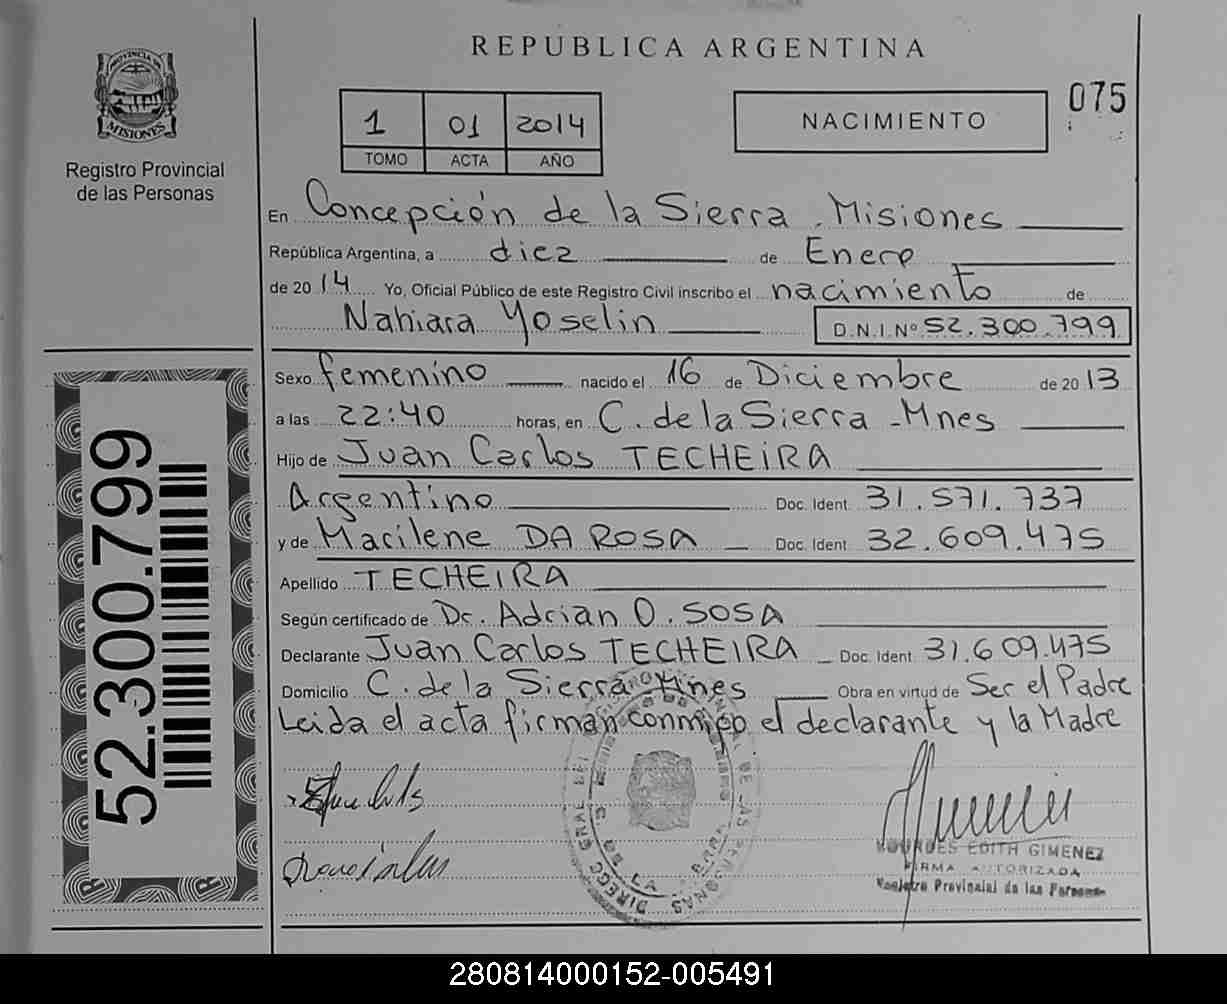 REPUBLICA ARGENTINA
PROVINCIA DE
MISIONES
Registro Provincial
de las Personas
1 01 2014
TOMO ACTA AÑO
NACIMIENTO
075
En Concepción de la Sierra, Misiones
República Argentina, a diez de Enero
de 2014 Yo, Oficial Público de este Registro Civil inscribo el nacimiento de
Nahiara Yoselin D.N.I.Nº 52.300.799
Sexo femenino nacido el 16 de Diciembre de 2013
a las 22:40 horas, en C. de la Sierra - Mnes
Hijo de Juan Carlos TECHEIRA
Argentino Doc. Ident. 31.571.737
y de Marilene DA ROSA Doc. Ident. 32.609.475
Apellido TECHEIRA
Según certificado de Dr. Adrian O. SOSA
Declarante Juan Carlos TECHEIRA Doc. Ident. 31.609.475
Domicilio C. de la Sierra Mnes Obra en virtud de Ser el Padre
Leida el acta firman conmigo el declarante y la Madre
52.300.799
LOURDES EDITH GIMENEZ
FIRMA AUTORIZADA
Registro Provincial de las Personas
280814000152-005491